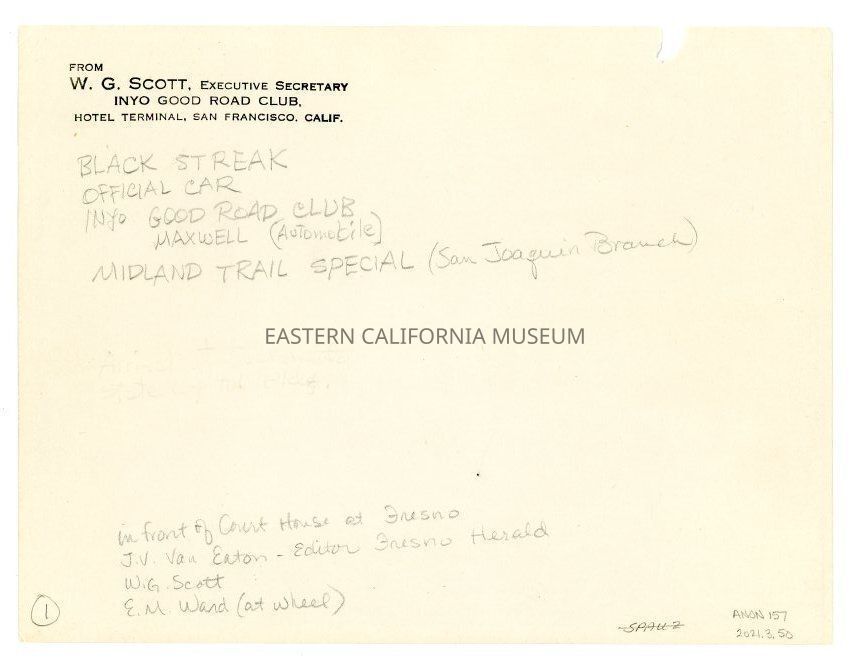 FROM
W. G. SCOTT, EXECUTIVE SECRETARY
INYO GOOD ROAD CLUB,
HOTEL TERMINAL, SAN FRANCISCO, CALIF.
BLACK STREAK
OFFICIAL CAR
INYO GOOD ROAD CLUB
MAXWELL (Automobile)
MIDLAND TRAIL SPECIAL (San Joaquin Branch)
EASTERN CALIFORNIA MUSEUM
in front of Court House at Fresno
J.V. Van Eaton - Editor Fresno Herald
W.G. Scott
E.M. Ward (at wheel)
1
ANON 157
2021.3.50